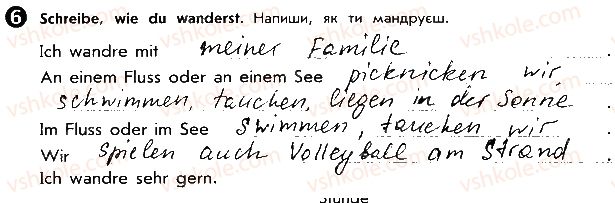 6 Schreibe, wie du wanderst. Напиши, як ти мандруєш.
Ich wandre mit meiner Familie.
An einem Fluss oder an einem See picknicken wir
schwimmen, tauchen, liegen in der Sonne.
Im Fluss oder im See swimmen, tauchen wir.
Wir spielen auch Volleyball am Strand.
Ich wandre sehr gern.
Stunde